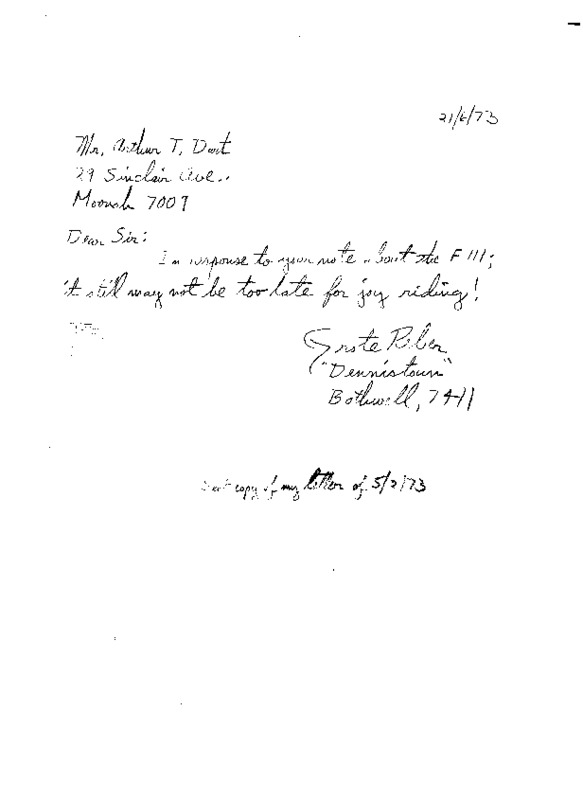 21/6/73
Mr. Arthur T. Dart
29 Sinclair Ave..
Moonah 7009
Dear Sir:
In response to your note about the F 111;
it still may not be too late for joy riding!
Grote Reber
"Dennistoun"
Bothwell, 7411
Sent copy of my letter of 5/2/73